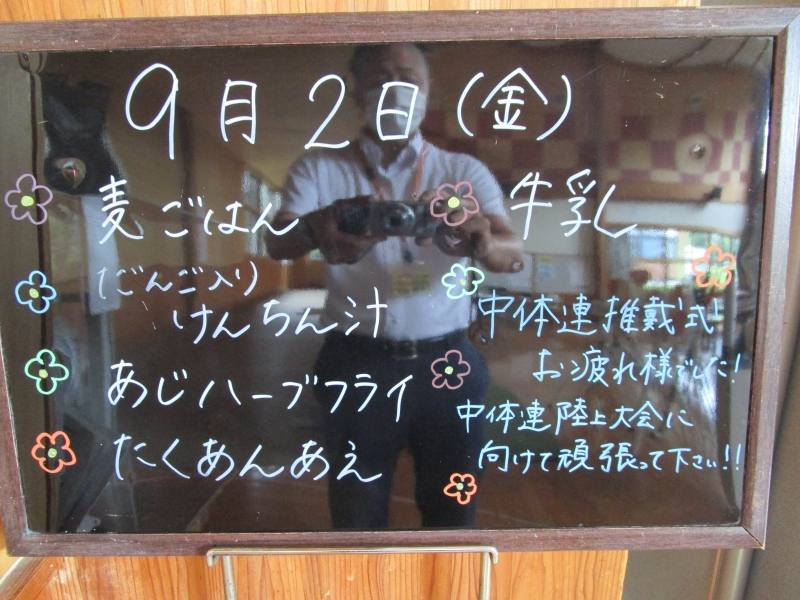 9月2日(金)
麦ごはん
牛乳
(だんご入り)
けんちん汁
あじハーブフライ
たくあんあえ
中体連推戴式
お疲れ様でした!
中体連陸上大会に
向けて頑張って下さい!!